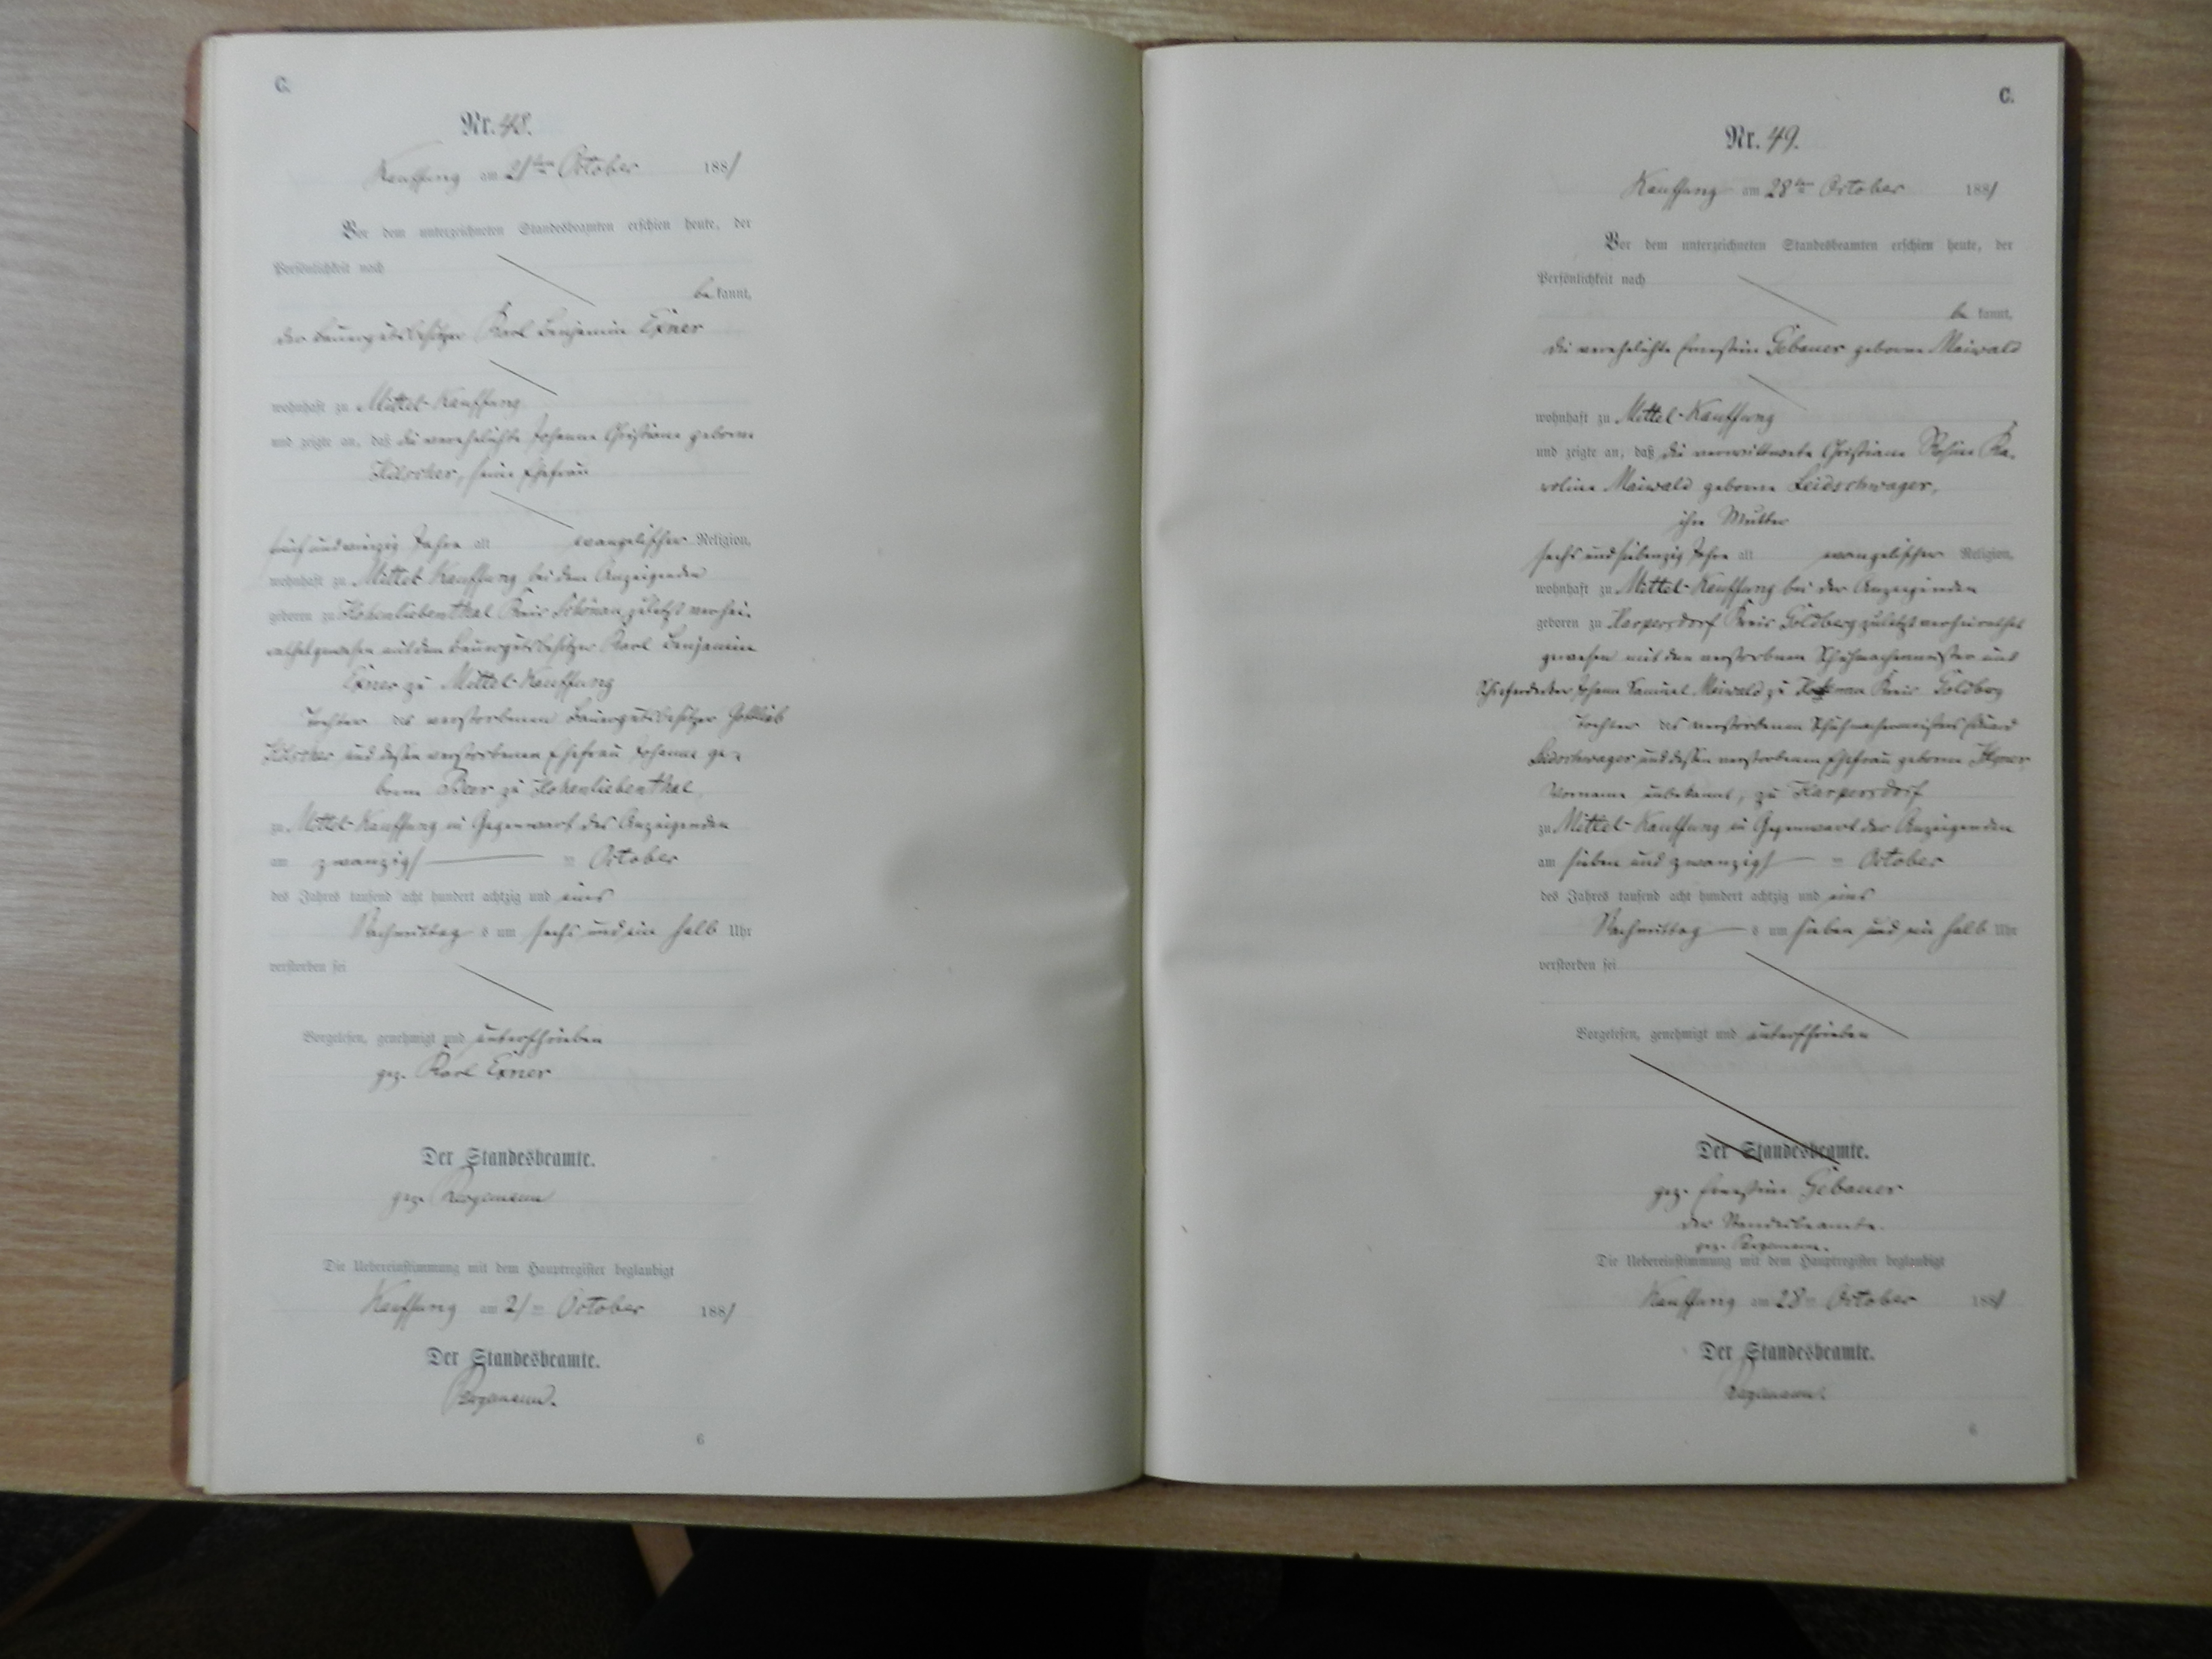 C.
Nr. 48.
Kauffung am 21ten October 1881
Vor dem unterzeichneten Standesbeamten erschien heute, der
Persönlichkeit nach
be kannt,
der Bauergutsbesitzer Karl Benjamin Exner
wohnhaft zu Mittel-Kauffung
und zeigte an, daß die verehelichte Johanne Christiane geborene
Hilscher, seine Ehefrau
fünf und vierzig Jahre alt evangelischer Religion,
wohnhaft zu Mittel-Kauffung bei dem Anzeigenden
geboren zu Hohenliebenthal Kreis Schönau zuletzt verhei-
rathet gewesen mit dem Bauergutsbesitzer Karl Benjamin
Exner zu Mittel-Kauffung
Tochter des verstorbenen Bauergutsbesitzer Gottlieb
Hilscher und dessen verstorbenen Ehefrau Johanne ge-
borene Beer zu Hohenliebenthal
zu Mittel-Kauffung in Gegenwart des Anzeigenden
am zwanzigsten October
des Jahres tausend acht hundert achtzig und eins
Nachmittag s um sechs und ein halb Uhr
verstorben sei
Vorgelesen, genehmigt und unterschrieben
gez. Karl Exner
Der Standesbeamte.
gez. Bergemann
Die Uebereinstimmung mit dem Hauptregister beglaubigt
Kauffung am 21ten October 1881
Der Standesbeamte.
Bergemann.
6
C.
Nr. 49.
Kauffung am 28ten October 1881
Vor dem unterzeichneten Standesbeamten erschien heute, der
Persönlichkeit nach
be kannt,
die verehelichte Ernestine Gebauer geborene Maiwald
wohnhaft zu Mittel-Kauffung
und zeigte an, daß die verwittwete Christiane Rosine Ka-
roline Maiwald geborene Leidschwager,
ihre Mutter
sechs und siebenzig Jahre alt evangelischer Religion,
wohnhaft zu Mittel-Kauffung bei der Anzeigenden
geboren zu Harpersdorf Kreis Goldberg zuletzt verheirathet
gewesen mit dem verstorbenen Schuhmachermeister und
Schieferdecker Johann Samuel Maiwald zu Kreis Goldberg
Tochter des verstorbenen Schuhmachermeisters Eduard
Leidschwager und dessen verstorbenen Ehefrau geborene
Vorname unbekannt, zu Harpersdorf
zu Mittel-Kauffung in Gegenwart der Anzeigenden
am sieben und zwanzigsten October
des Jahres tausend acht hundert achtzig und eins
Nachmittag s um sieben und ein halb Uhr
verstorben sei
Vorgelesen, genehmigt und unterschrieben
Der Standesbeamte.
gez. Ernestine Gebauer
Der Standesbeamte.
gez. Bergemann.
Die Uebereinstimmung mit dem Hauptregister beglaubigt
Kauffung am 28ten October 1881
Der Standesbeamte.
Bergemann.
6